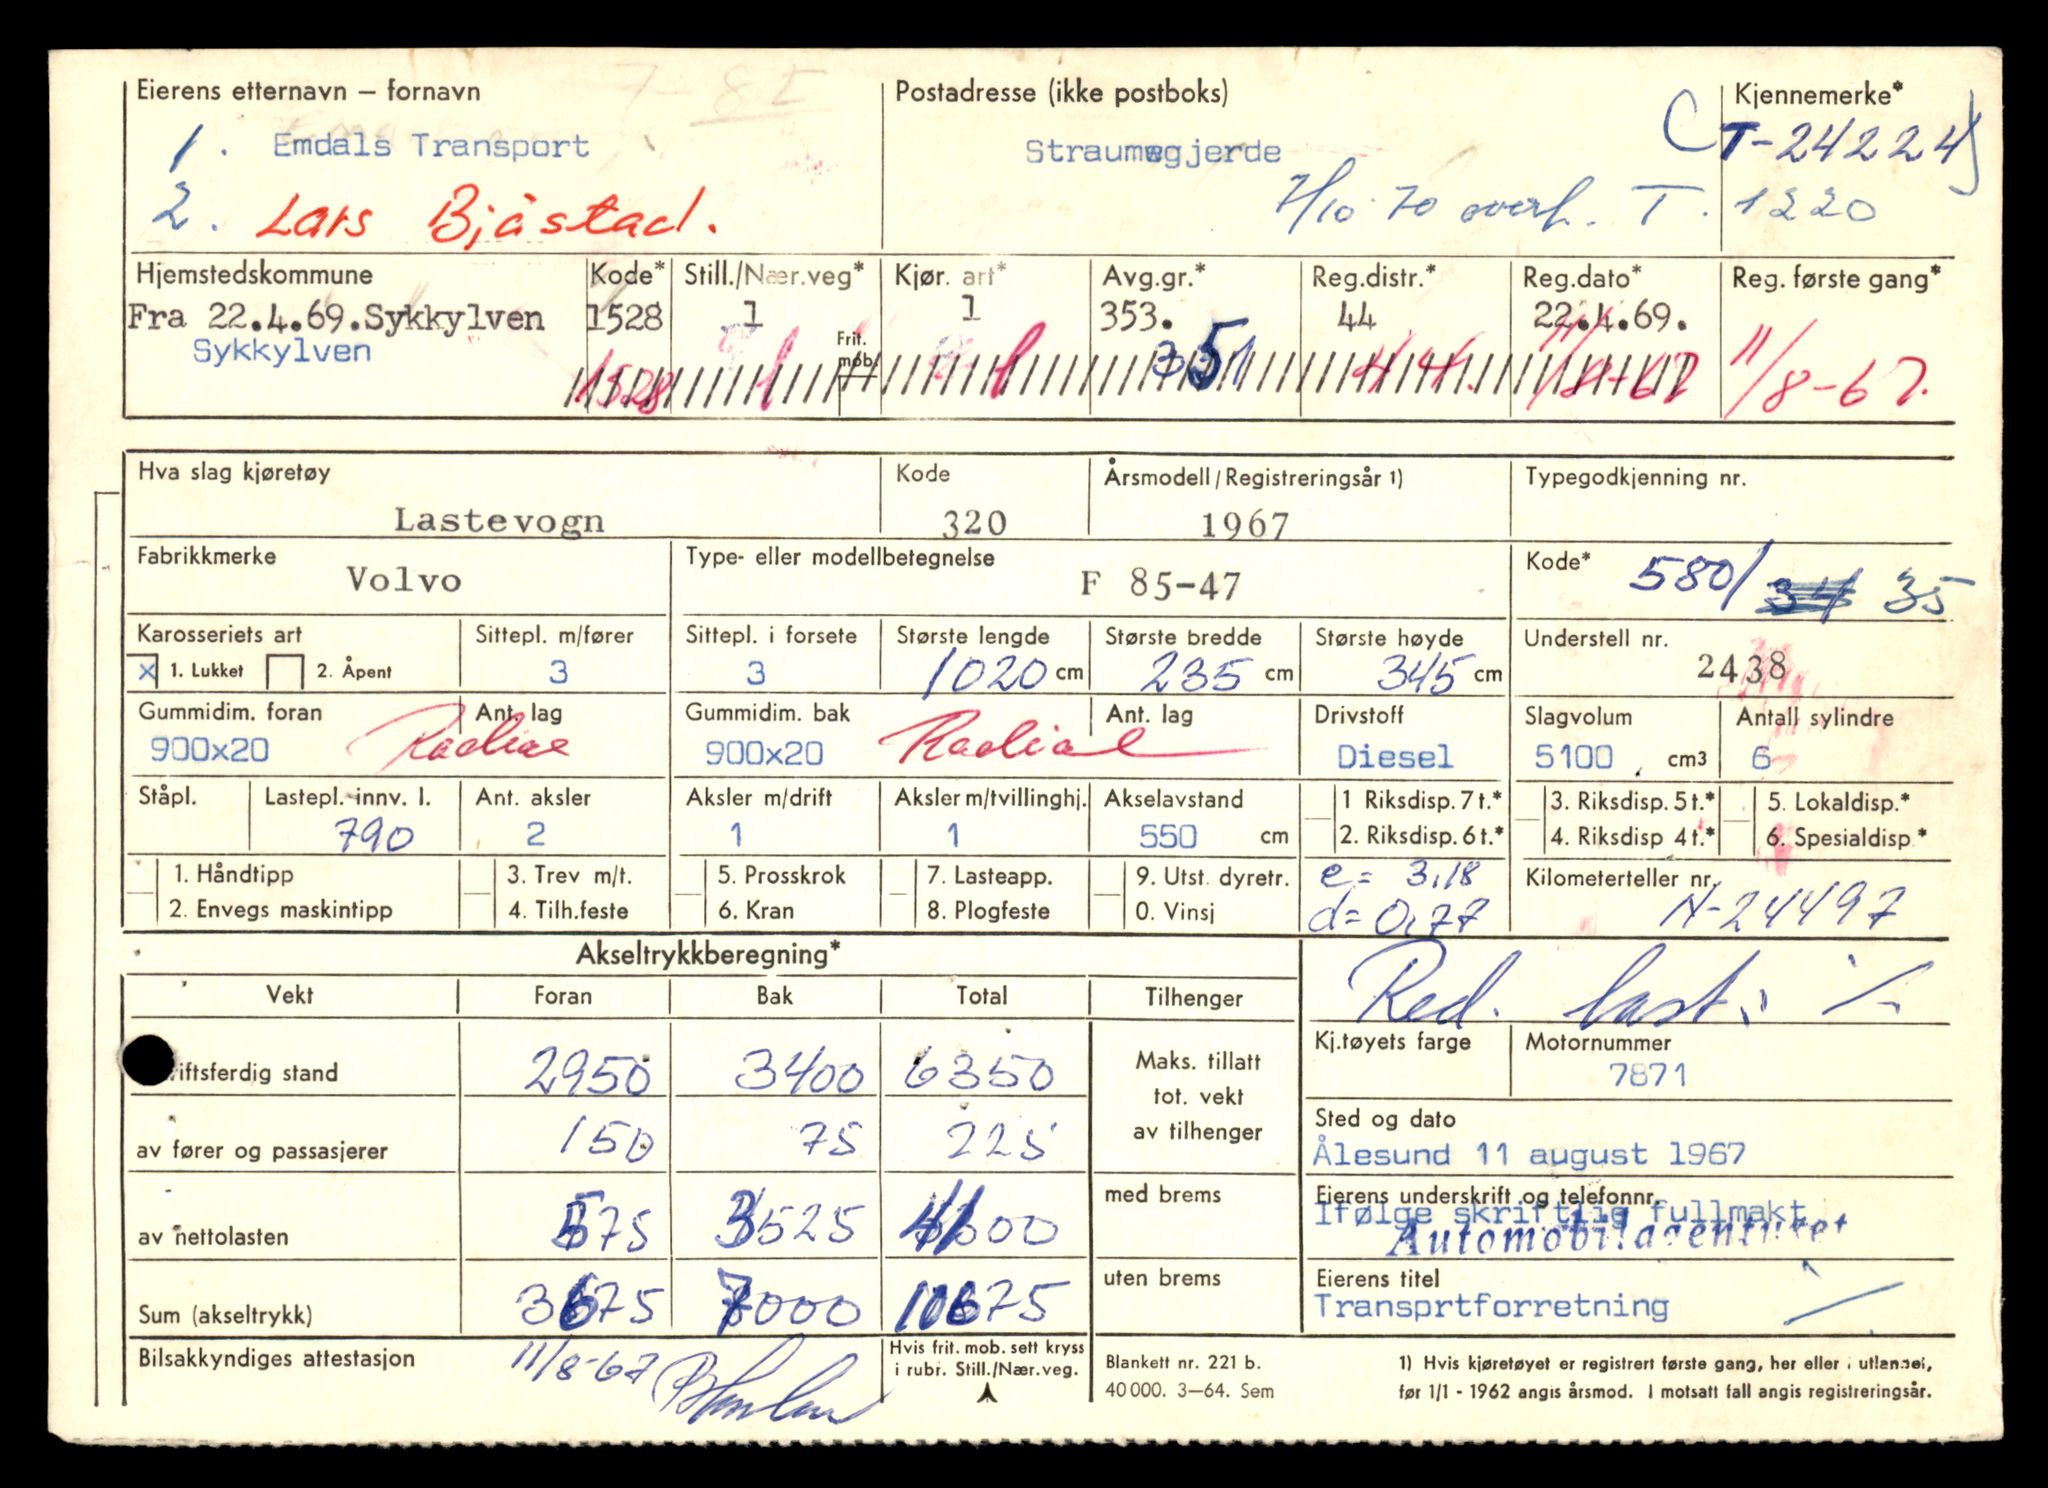 Eierens etternavn – fornavn
Postadresse (ikke postboks)
Kjennemerke*
1. Emdals Transport
Straumsgjerde
(T-24224)
7/10 70 overf. T. 1220
2. Lars Bjåstad.
Hjemstedskommune
Kode*
Still./Nær.veg*
Kjør. art*
Avg.gr.*
Reg.distr.*
Reg.dato*
Reg. første gang*
Fra 22.4.69.Sykkylven
1528
1
1
353.
44
22.4.69.
Sykkylven
Frit. møb.
1528
1
1
351
44.
11/8-67
11/8-67.
Hva slag kjøretøy
Kode
Årsmodell/Registreringsår 1)
Typegodkjenning nr.
Lastevogn
320
1967
Fabrikkmerke
Type- eller modellbetegnelse
Kode*
Volvo
F 85-47
580/ 34 35
Karosseriets art
Sittepl. m/fører
Sittepl. i forsete
Største lengde
Største bredde
Største høyde
Understell nr.
x 1. Lukket
2. Åpent
3
3
1020 cm
235 cm
345 cm
2438
Gummidim. foran
Ant. lag
Gummidim. bak
Ant. lag
Drivstoff
Slagvolum
Antall sylindre
900x20 Radial
900x20 Radial
Diesel
5100 cm3
6
Ståpl.
Lastepl. innv. l.
Ant. aksler
Aksler m/drift
Aksler m/tvillinghj.
Akselavstand
790
2
1
1
550 cm
1 Riksdisp. 7 t.*
2. Riksdisp. 6 t.*
3. Riksdisp. 5 t.*
4. Riksdisp 4 t.*
5. Lokaldisp.*
6. Spesialdisp*
1. Håndtipp
2. Envegs maskintipp
3. Trev m/t.
4. Tilh.feste
5. Prosskrok
6. Kran
7. Lasteapp.
8. Plogfeste
9. Utst. dyretr.
0. Vinsj
e = 3,18
d = 0,77
Kilometerteller nr.
N-24497
Akseltrykkberegning*
Red. last: /
Vekt
Foran
Bak
Total
Tilhenger
driftsferdig stand
2950
3400
6350
Maks. tillatt
tot. vekt
av tilhenger
Kj.tøyets farge
Motornummer
7871
av fører og passasjerer
150
75
225
Sted og dato
Ålesund 11 august 1967
av nettolasten
575
3525
4100
med brems
Eierens underskrift og telefonnr.
Ifølge skriftlig fullmakt
Automobilagenturet
Sum (akseltrykk)
3675
7000
10675
uten brems
Eierens titel
Transprtforretning
Bilsakkyndiges attestasjon
11/8-67
Hvis frit. mob. sett kryss
i rubr. Still./Nær.veg.
Blankett nr. 221 b.
40 000. 3–64. Sem
1) Hvis kjøretøyet er registrert første gang, her eller i utlandet,
før 1/1 - 1962 angis årsmod. I motsatt fall angis registreringsår.